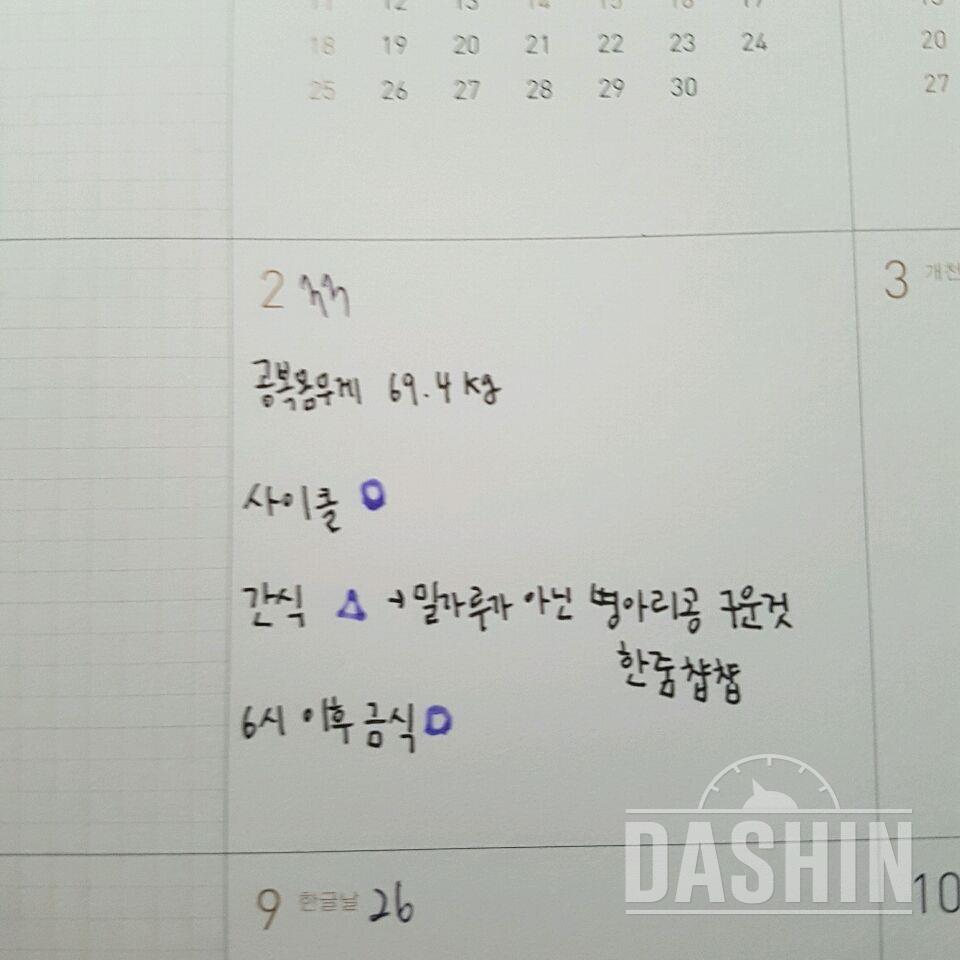 11 12 13 14 15 16 17
18 19 20 21 22 23 24
20
25 26 27 28 29 30
27
2
3 개천
공복몸무게 69.4kg
사이클 O
간식 △ → 밀가루가 아닌 병아리콩 구운것
한줌 챱챱
6시 이후 금식 O
DASHIN
9 한글날 26
10